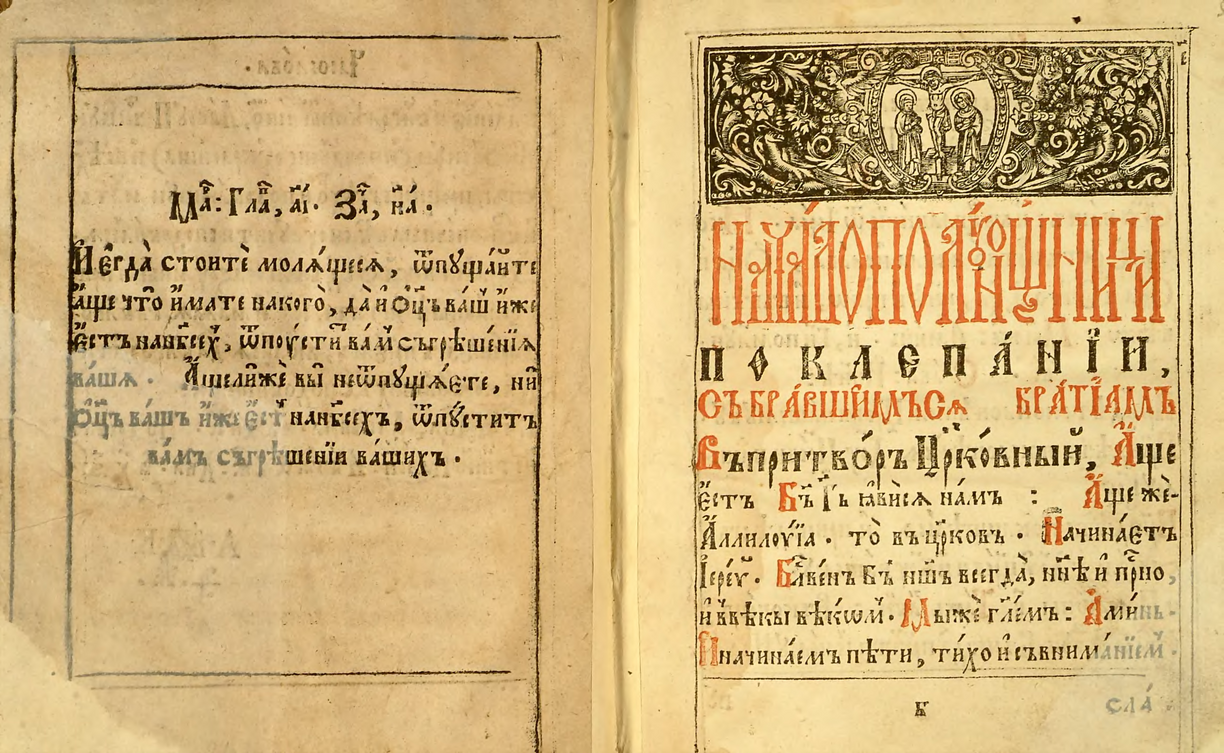 Ма҃: Гла҃, а҃і. За҃, н҃а.
И҆ егда̀ стоитѐ молѧ́щесѧ, ѿпꙋща́йте
а҆́ще что̀ и҆́мате накого̀, да̀ и҆ Ѻ҆ц҃ъ ва́шъ и҆́же
є҆́стъ нанб҃сех̾, ѿпоу́сти́т вам̾ съгрѣше́нїѧ
ва́шѧ. А҆́щелижѐ вы̀ неѿпꙋща́ете, ни
Ѻ҆ц҃ъ ва́шъ и҆́же є҆́ст̾ нанб҃сехъ, ѿпꙋ́ститъ
ва́мъ съгрѣше́нїи ва́шихъ.
НАЧА́ЛО ПОЛꙊНО́ЩНИЦИ
ПО КЛЕПА́НЇИ,
СЪБРА́ВШИМЪСѦ БРА́ТЇАМЪ
Въ притво́ръ Цр҃ко́вный, А҆́ще
є҆́стъ Бг҃ъ Гь҃ ꙗ҆ви́сѧ на́мъ : А҆́ще жѐ-
А҆ллилоу́їа. то̀ въ цр҃ковъ. Начина́етъ
І҆ере́ꙋ. Блг҃ве́нъ Бг҃ъ нш҃ъ всегда̀, нн҃ѣ и҆ пр҃но,
и҆ въвѣ́кы вѣкѡ́м̾. Мы́же гл҃емъ: А҆ми́нь.
И҆ начина́емъ пѣ́ти, ти́хо и҆ съвнима́нїем̾.
к҃ СЛА́